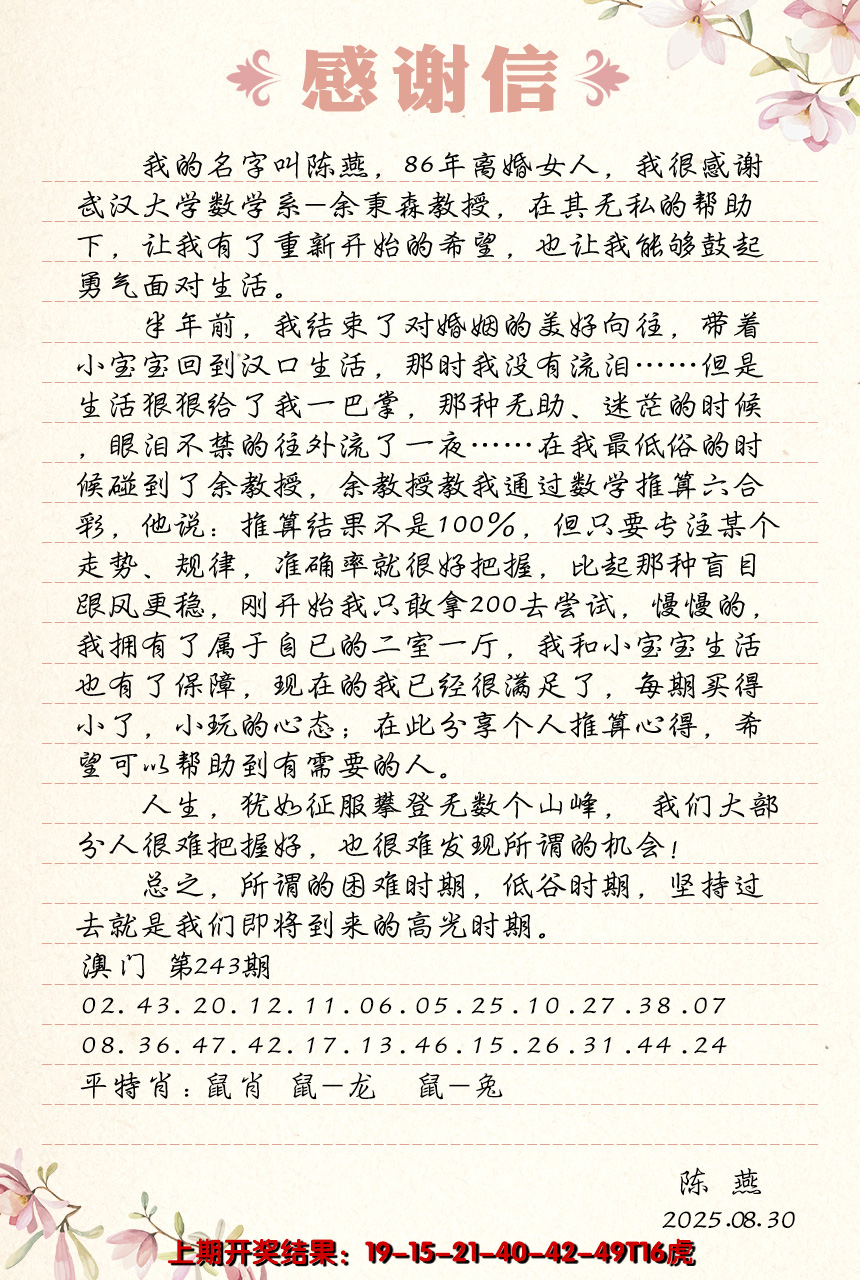 感谢信
我的名字叫陈燕，86年离婚女人，我很感谢
武汉大学数学系—余秉森教授，在其无私的帮助
下，让我有了重新开始的希望，也让我能够鼓起
勇气面对生活。
半年前，我结束了对婚姻的美好向往，带着
小宝宝回到汉口生活，那时我没有流泪……但是
生活狠狠给了我一巴掌，那种无助、迷茫的时候
，眼泪不禁的往外流了一夜……在我最低俗的时
候碰到了余教授，余教授教我通过数学推算六合
彩，他说：推算结果不是100%，但只要专注某个
走势、规律，准确率就很好把握，比起那种盲目
跟风更稳，刚开始我只敢拿200去尝试，慢慢的，
我拥有了属于自已的二室一厅，我和小宝宝生活
也有了保障，现在的我已经很满足了，每期买得
小了，小玩的心态；在此分享个人推算心得，希
望可以帮助到有需要的人。
人生，犹如征服攀登无数个山峰， 我们大部
分人很难把握好，也很难发现所谓的机会！
总之，所谓的困难时期，低谷时期，坚持过
去就是我们即将到来的高光时期。
澳门 第243期
02.43.20.12.11.06.05.25.10.27.38.07
08.36.47.42.17.13.46.15.26.31.44.24
平特肖：鼠肖 鼠—龙 鼠—兔
陈 燕
2025.08.30
上期开奖结果：19-15-21-40-42-49T16虎